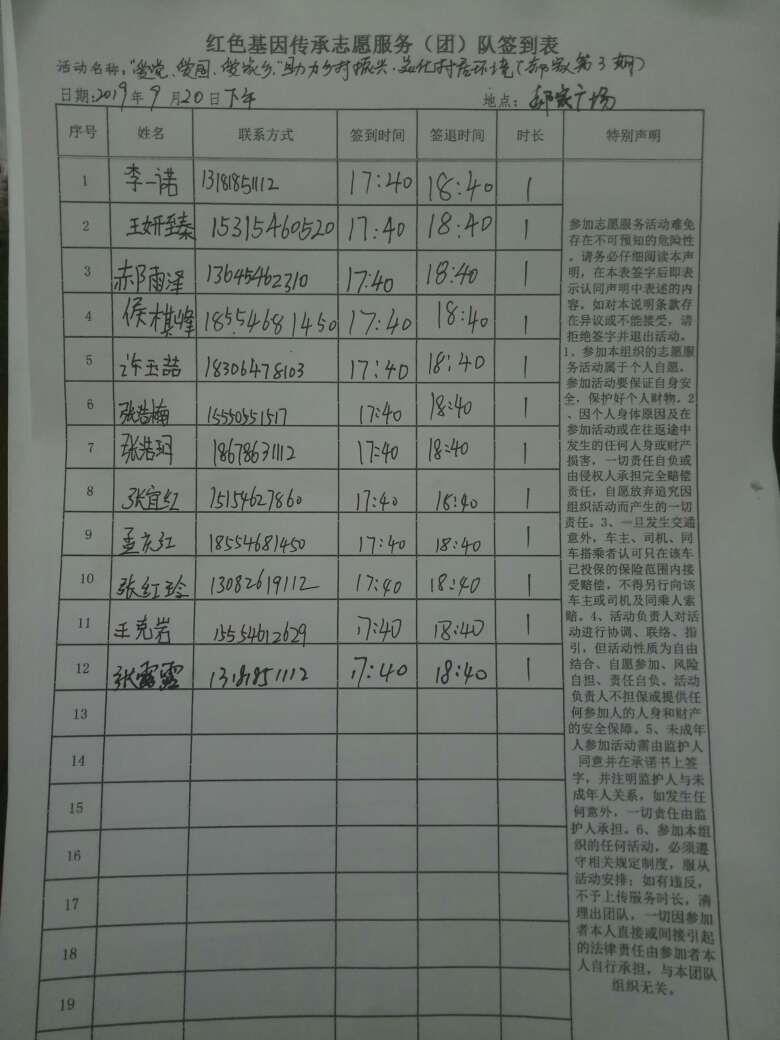 红色基因传承志愿服务（团）队签到表
活动名称："爱党、爱国、爱家乡"助力乡村振兴、美化村居环境（郝家第3期）
日期：2019年9月20日下午 地点：郝家广场
序号 姓名 联系方式 签到时间 签退时间 时长 特别声明
1 李一诺 13181851112 17:40 18:40 1
2 王妍臻 15315460520 17:40 18:40 1
3 郝雨泽 13645462310 17:40 18:40 1
4 侯棋峰 18554681450 17:40 18:40 1
5 许玉喆 18306478103 17:40 18:40 1
6 张浩楠 15550551517 17:40 18:40 1
7 张浩玥 18678631112 17:40 18:40 1
8 张宜红 15154627860 17:40 18:40 1
9 孟庆红 18554681450 17:40 18:40 1
10 张红玲 13082619112 17:40 18:40 1
11 王克岩 15554612629 17:40 18:40 1
12 张露露 13181851112 17:40 18:40 1
13
14
15
16
17
18
19
参加志愿服务活动难免
存在不可预知的危险性
。请务必仔细阅读本声
明，在本表签字后即表
示认同声明中表述的内
容。如对本说明条款存
在异议或不能接受，请
拒绝签字并退出活动。
1、参加本组织的志愿服
务活动属于个人自愿。
参加活动要保证自身安
全，保护好个人财物。2
、因个人身体原因及在
参加活动或在往返途中
发生的任何人身或财产
损害，一切责任自负或
由侵权人承担完全赔偿
责任，自愿放弃追究因
组织活动而产生的一切
责任。3、一旦发生交通
意外，车主、司机、同
车搭乘者认可只在该车
已投保的保险范围内接
受赔偿，不得另行向该
车主或司机及同乘人索
赔。4、活动负责人对活
动进行协调、联络、指
引，但活动性质为自由
结合、自愿参加、风险
自担、责任自负。活动
负责人不担保或提供任
何参加人的人身和财产
的安全保障。5、未成年
人参加活动需由监护人
同意并在承诺书上签
字，并注明监护人与未
成年人关系，如发生任
何意外，一切责任由监
护人承担。6、参加本组
织的任何活动，必须遵
守相关规定制度，服从
活动安排；如有违反，
不予上传服务时长，清
理出团队，一切因参加
者本人直接或间接引起
的法律责任由参加者本
人自行承担，与本团队
组织无关。